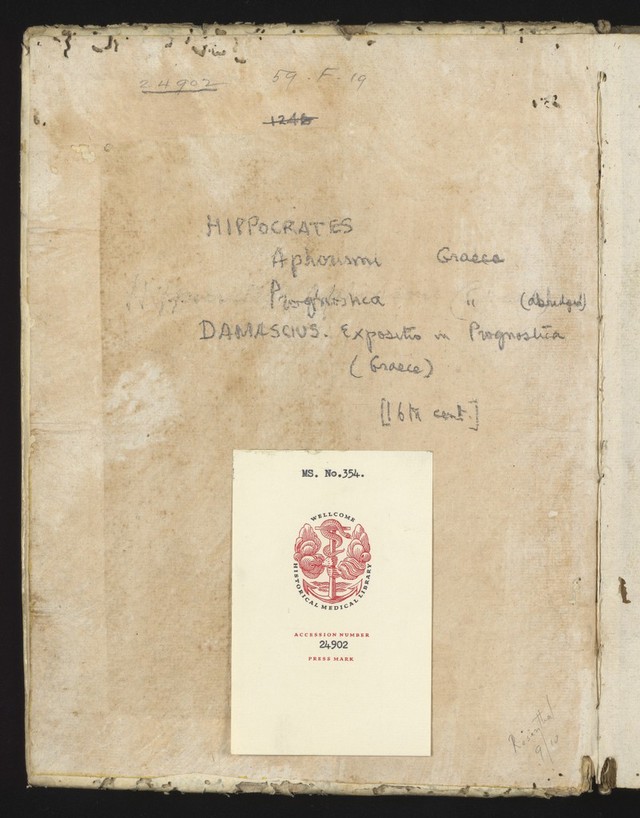 24902 59. F. 19
1246
HIPPOCRATES
Aphorismi Graece
Prognostica " (abridged)
DAMASCIUS. Expositio in Prognostica
(Graece)
[16th cent.]
MS. No.354.
WELLCOME
HISTORICAL MEDICAL LIBRARY
ACCESSION NUMBER
24902
PRESS MARK
Rosenthal
9/10